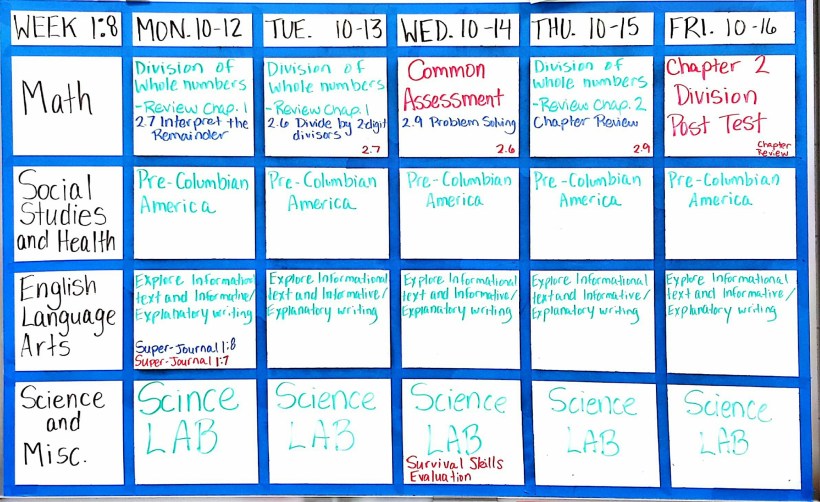 WEEK 1:8
MON. 10-12
TUE. 10-13
WED. 10-14
THU. 10-15
FRI. 10-16
Math
Division of
Whole numbers
-Review Chap. 1
2.7 Interpret the
Remainder
Division of
Whole numbers
-Review Chap. 1
2.6 Divide by 2digit
divisors
2.7
Common
Assessment
2.9 Problem Solving
2.6
Division of
Whole numbers
-Review Chap. 2
Chapter Review
2.9
Chapter 2
Division
Post Test
Chapter
Review
Social
Studies
and Health
Pre-Columbian
America
Pre-Columbian
America
Pre-Columbian
America
Pre-Columbian
America
Pre-Columbian
America
English
Language
Arts
Explore Informational
text and Informative/
Explanatory writing
Super-Journal 1:8
Super-Journal 1:7
Explore Informational
text and Informative/
Explanatory writing
Explore Informational
text and Informative/
Explanatory writing
Explore Informational
text and Informative/
Explanatory writing
Explore Informational
text and Informative/
Explanatory writing
Science
and
Misc.
Scince
LAB
Science
LAB
Science
LAB
Survival Skills
Evaluation
Science
LAB
Science
LAB